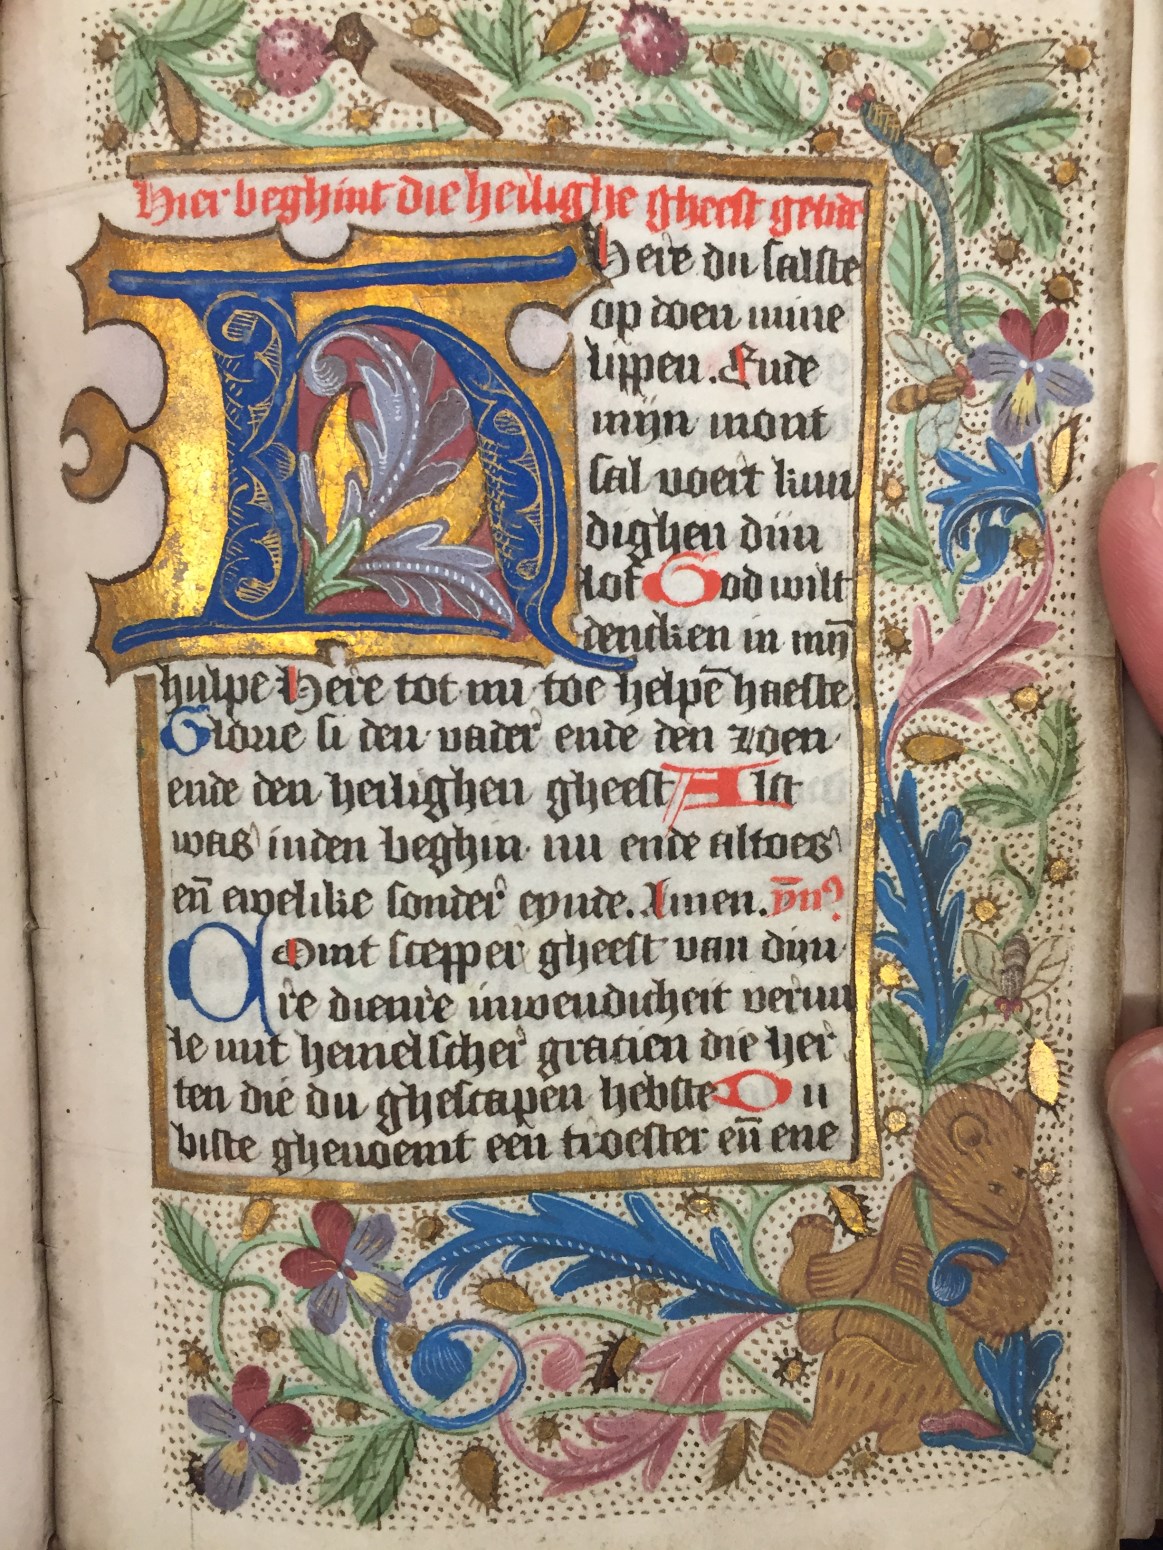 Hier beghint die heilighe gheest getide
Here du salste
op doen mine
lippen. Ende
mijn mont
sal voert kun
dighen dijn
lof God wilt
dencken in mȳ
hulpe Here tot mi toe helpē haeste.
Glorie si den vader ende den zoen
ende den heilighen gheest Alst
was inden beghin nu ende altoes
eñ ewelike sonder eynde. Amen. ȳm̄
Comt scepper gheest van dijn
re dienre inwendicheit vervu
le mit hemelscher gracien die her
ten die du ghescapen hebste Du
biste ghenoemt een troester eñ ene